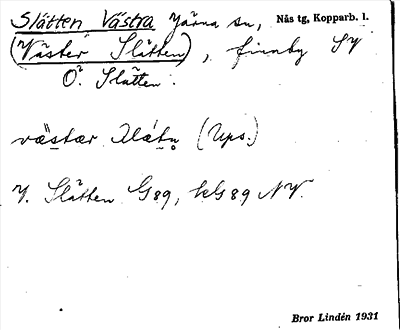 Slätten Västra Järna sn, Nås tg, Kopparb. l.
(Väster Slätten), finnby SV
O. Slätten.
västær (Ups.)
V. Slätten G89, kG89 NV.
Bror Lindén 1931